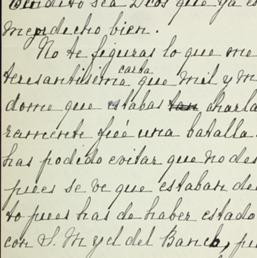 Bendito sea Dios que ya es
me dicho bien.
No te figuras lo que me
teresantísima carta que mil y m
dome que estabas tan charla
ramente fué una batalla
has podido evitar que no des
pues se ve que estaban de
to pues has de haber estado
con S. M y el del Banco, pu